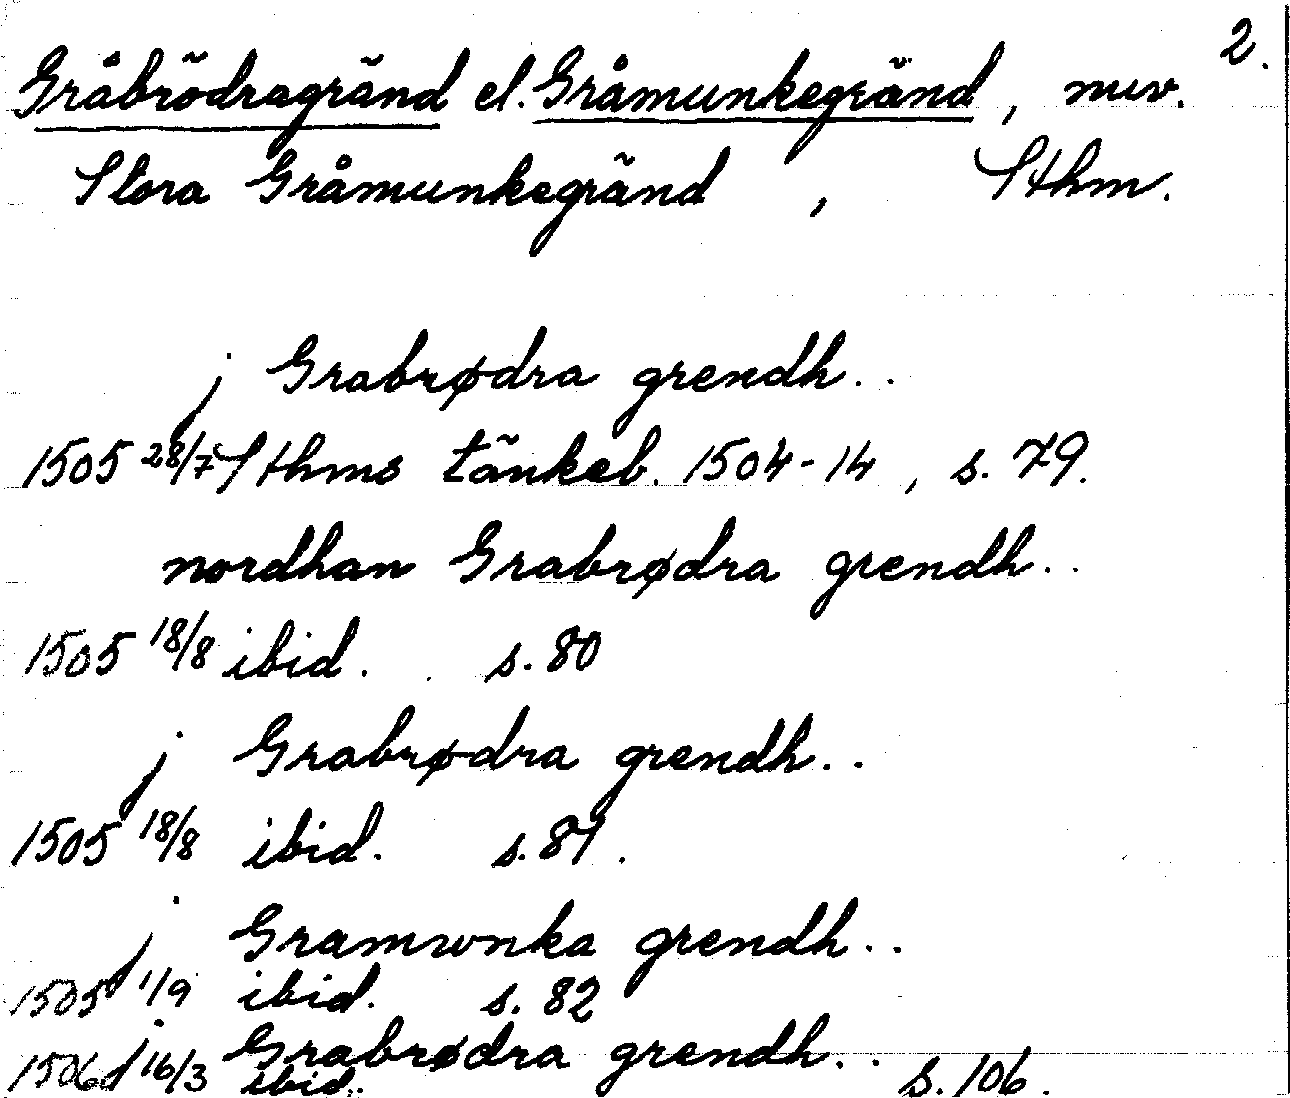 2.
Gråbrödragränd el. Gråmunkegränd, nuv.
Stora Gråmunkegränd, Sthm.
j Grabrødra grendh..
1505 28/7 Sthms tänkeb. 1504-14, s. 79.
nordhan Grabrødra grendh..
1505 18/8 ibid. s. 80
j Grabrødra grendh..
1505 18/8 ibid. s. 81.
j Gramwnka grendh..
1505 1/9 ibid. s. 82
j Grabrødra grendh..
1506 16/3 ibid. s. 106.